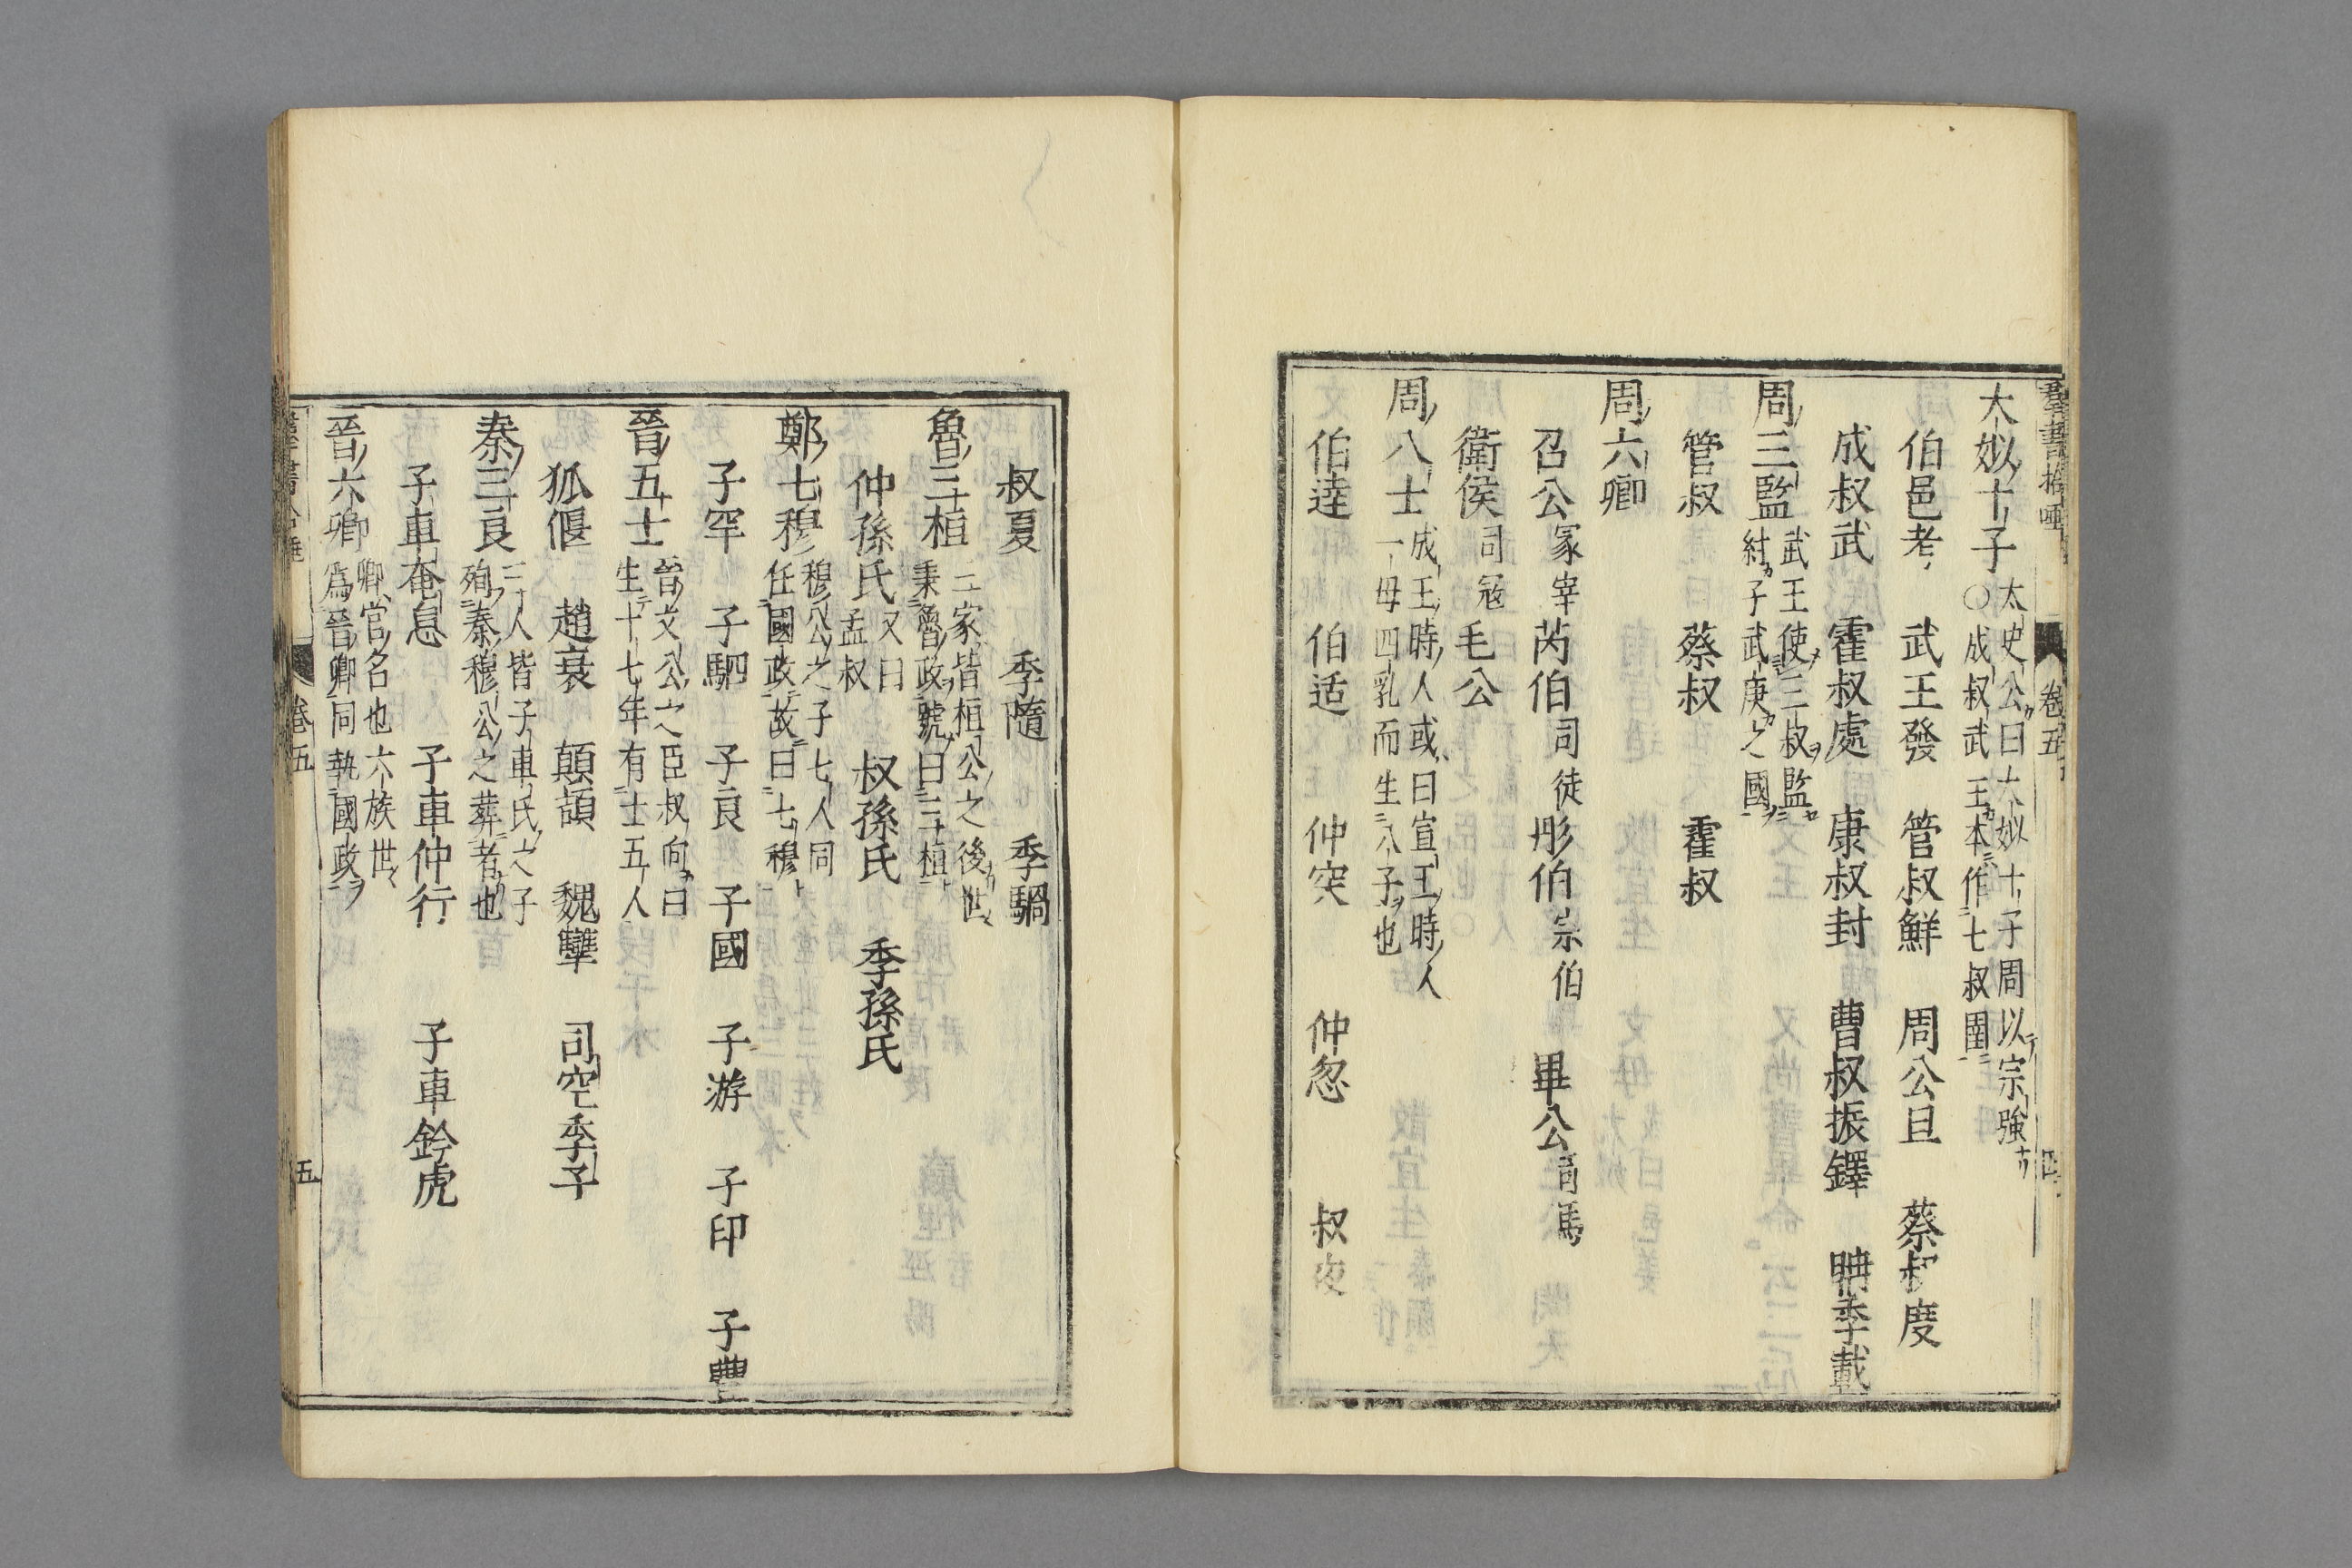 羣書拾唾 卷五 四
大姒十子 太史公曰大姒十子周以宗強
○成叔武王本作七叔圉
伯邑考 武王發 管叔鮮 周公旦 蔡叔度
成叔武 霍叔處 康叔封 曹叔振鐸 聃季載
周三監 武王使三叔監
紂子武庚之國
管叔 蔡叔 霍叔
周六卿
召公冢宰 芮伯司徒 彤伯宗伯 畢公司馬
衛侯司冦 毛公
周八士 成王時人或曰宣王時人
一母四乳而生八子也
伯達 伯适 仲突 仲忽 叔夜
叔夏 季隨 季騧
魯三桓 三家皆桓公之後世
秉魯政號曰三桓
仲孫氏又曰孟叔 叔孫氏 季孫氏
鄭七穆 穆公之子七人同
任國政故曰七穆
子罕 子駟 子良 子國 子游 子印 子豐
晉五士 晉文公之臣叔向曰
生十七年有士五人
狐偃 趙衰 顛頡 魏犨 司空季子
秦三良 三人皆子車氏之子
殉秦穆公之葬者也
子車奄息 子車仲行 子車鈐虎
晉六卿 卿官名也六族世
爲晉卿同執國政
卷五 五